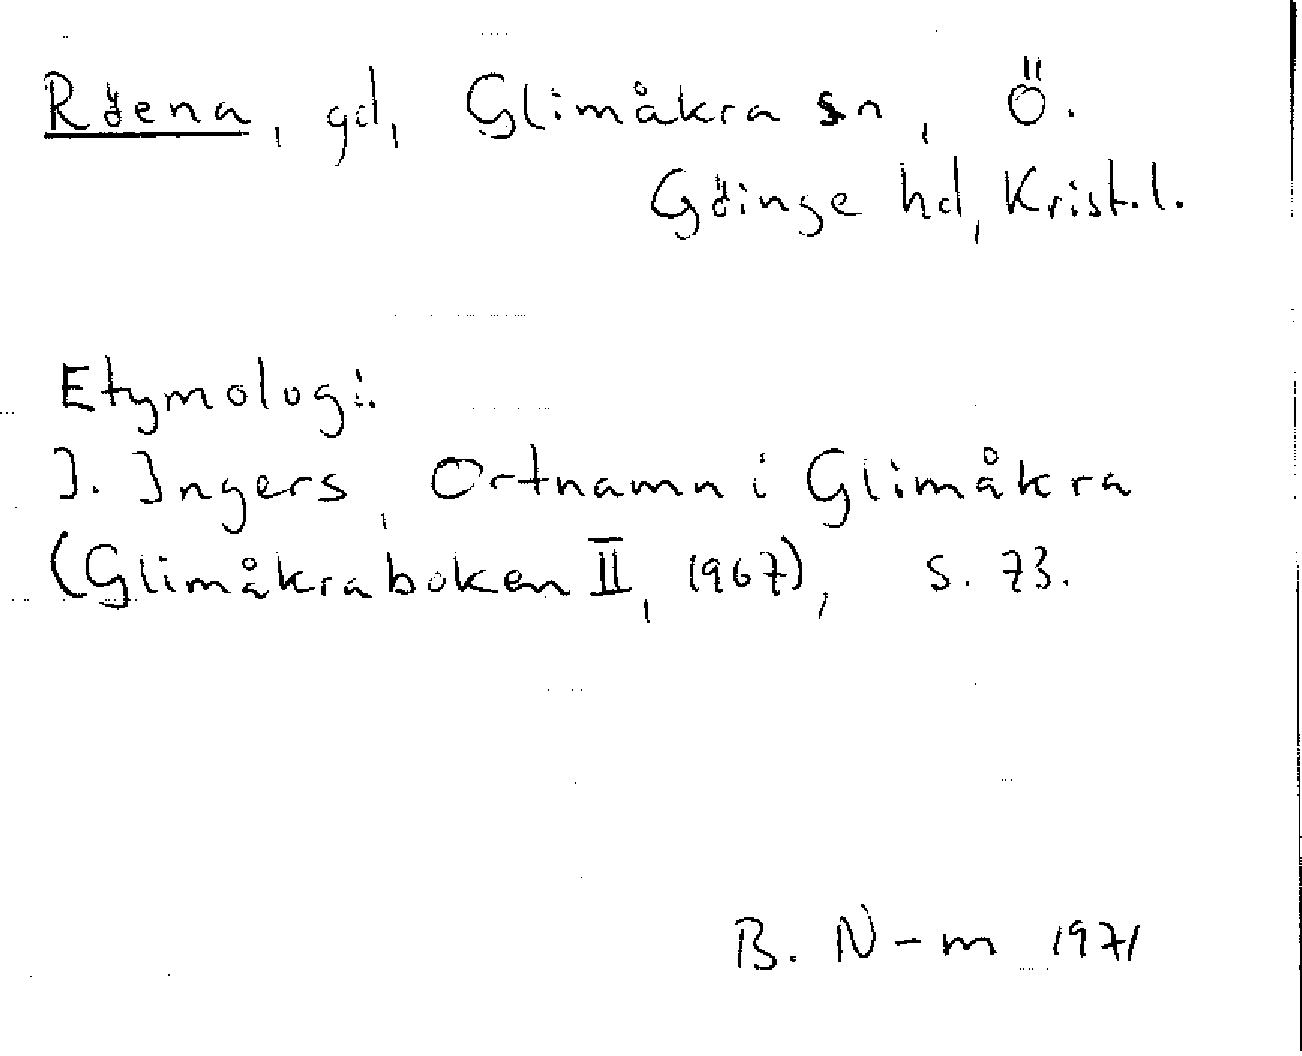 Röena, gd, Glimåkra sn, Ö.
Göinge hd, Krist.l.
Etymologi:
I. Ingers, Ortnamn i Glimåkra
(Glimåkraboken II, 1967), s. 73.
B. N-m 1971